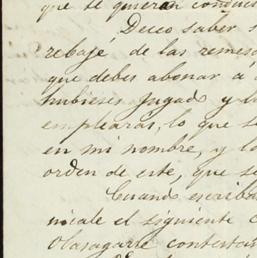 que te quieran conduci
Deceo saber s
rebaje de las remesa
que debes abonar a
hubieses jugado y l
emplearas, lo que s
en mi nombre, y lo
orden de este, que se
Cuando escriba
nicale el siguiente c
Olasagarte contestas